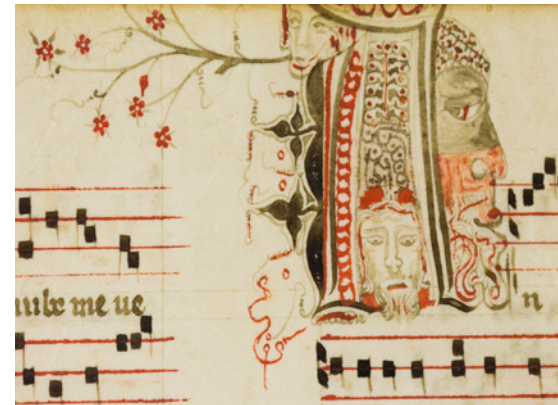 iube me ue n